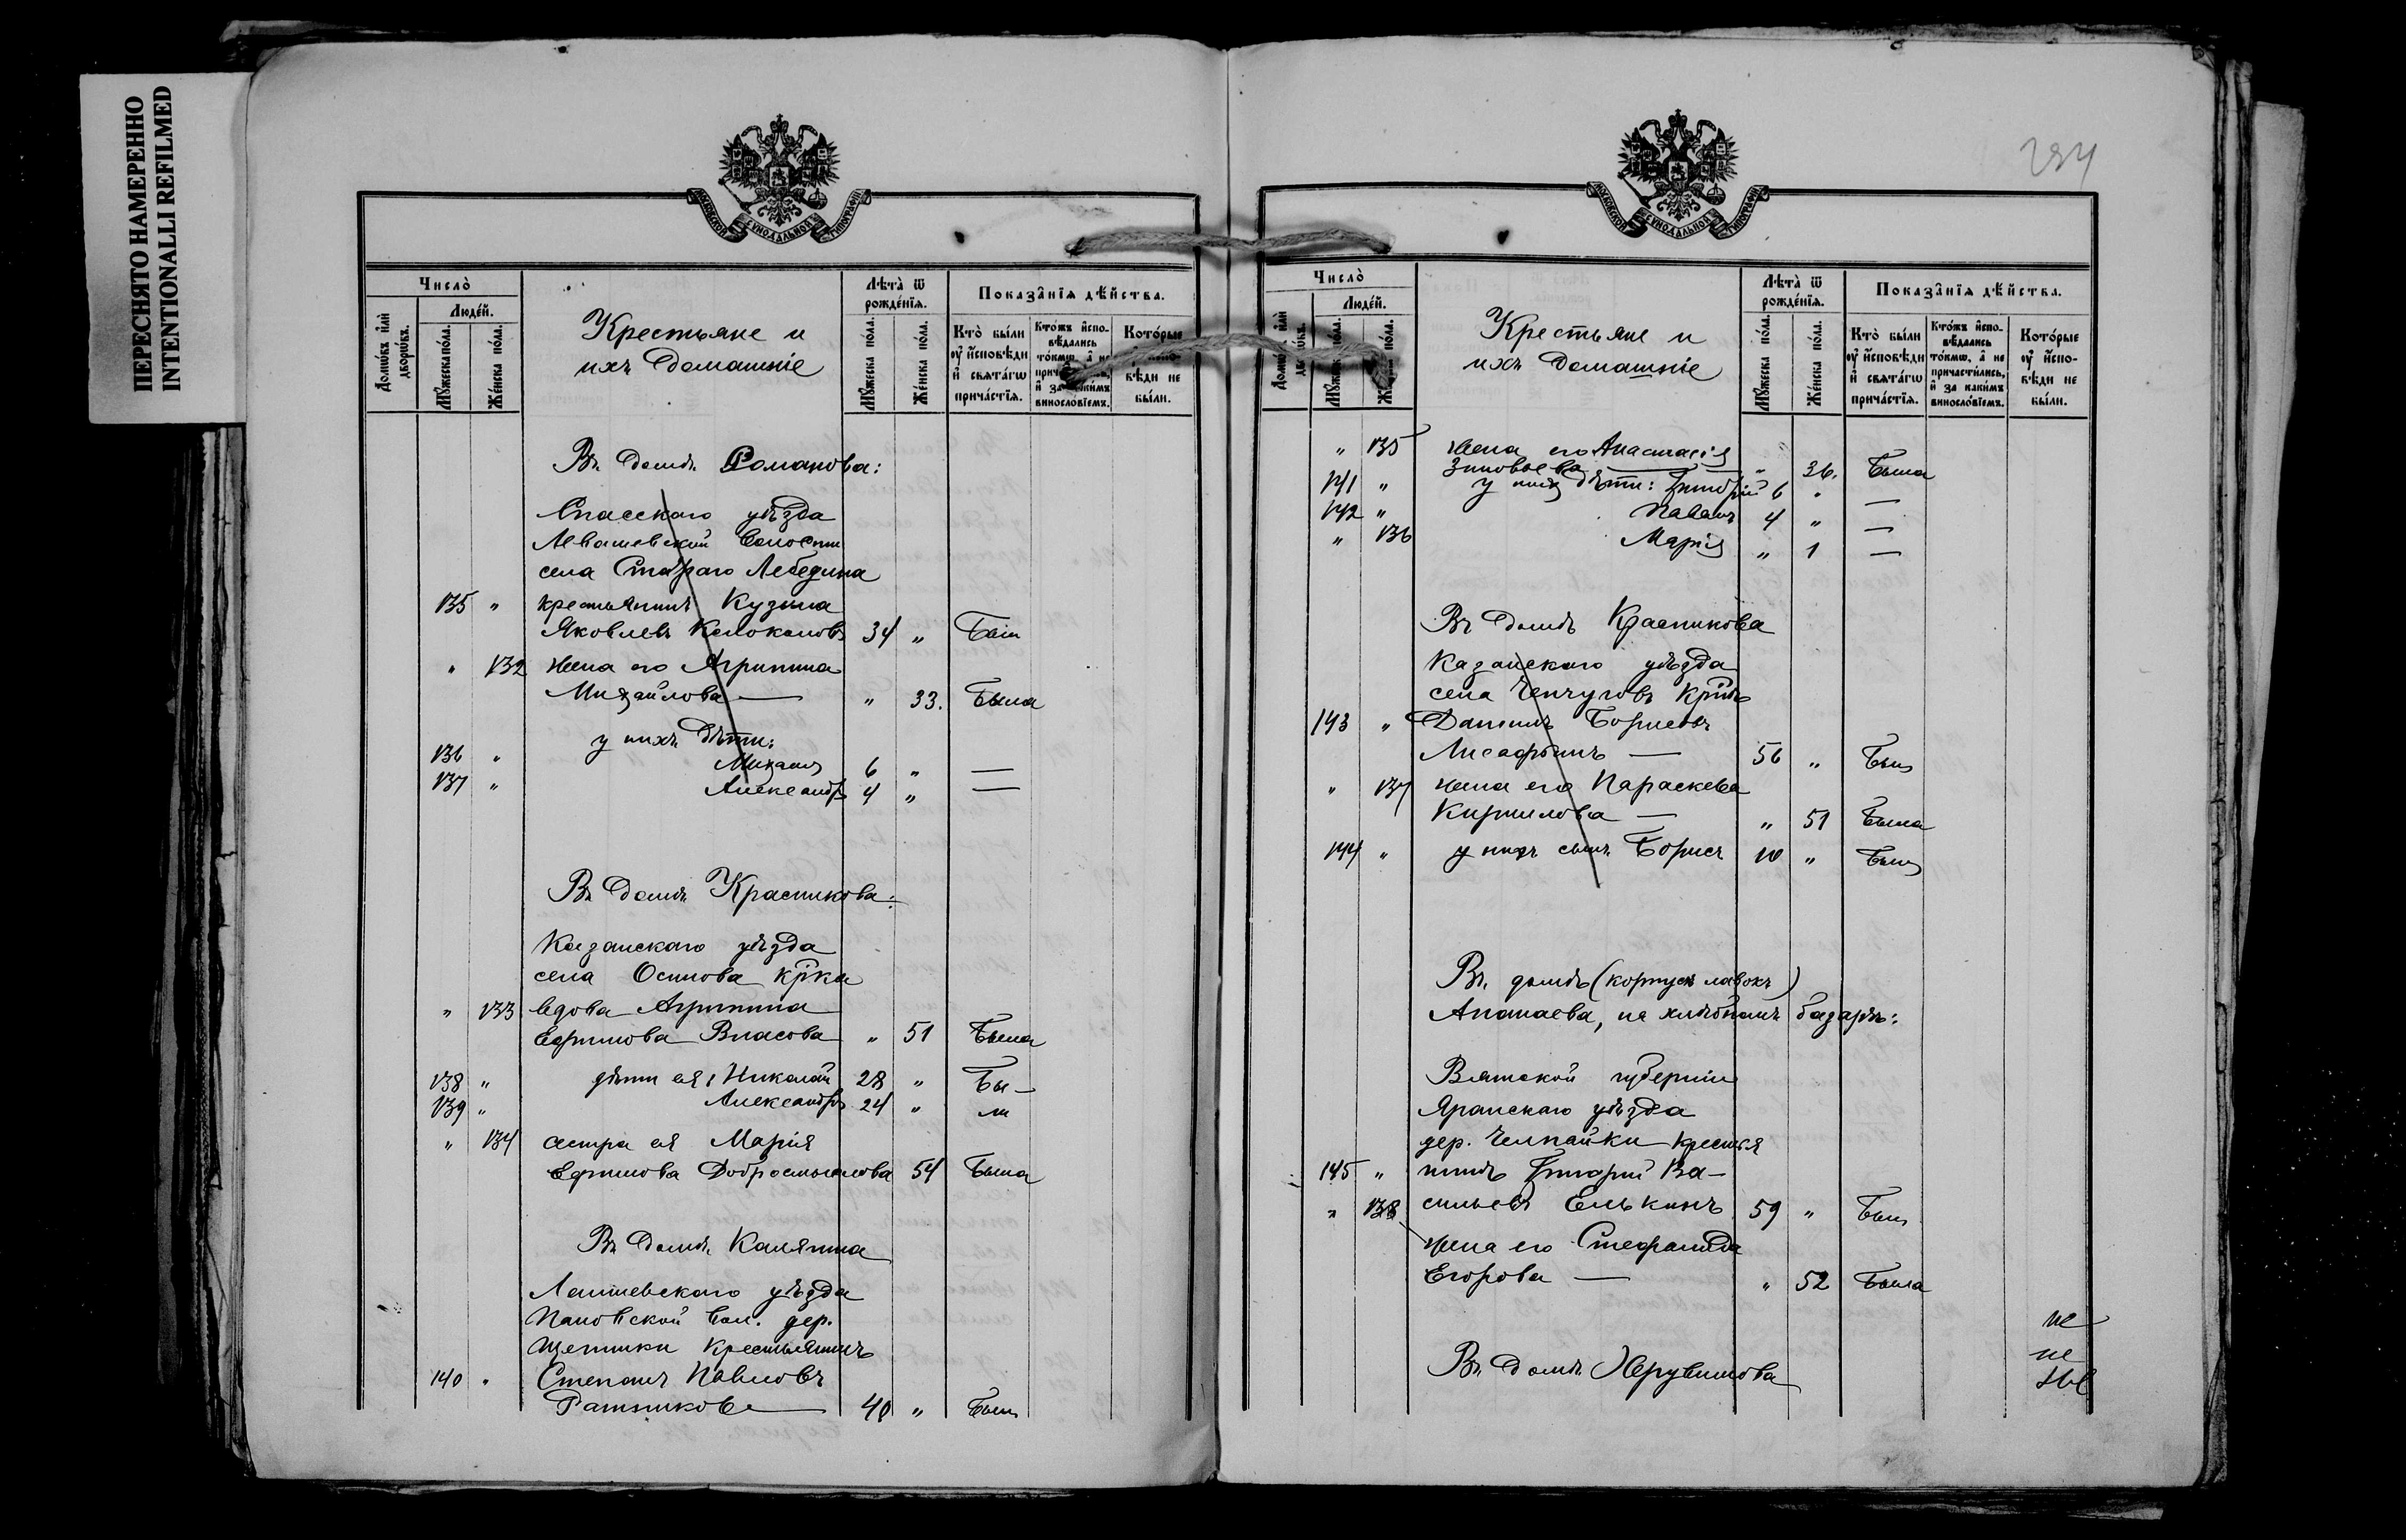 ПЕРЕСНЯТО НАМЕРЕННО
INTENTIONALLI REFILMED
МОСКОВСКОЙ СѴНОДАЛЬНОЙ ТИПОГРАФІИ
Число̀
Домѡ́въ и҆лѝ дворѡ́въ.
Люде́й.
Мꙋ́жеска по́ла.
Же́нска по́ла.
Крестьяне и
ихъ домашніе
Лѣта̀ ѿ рожде́нїѧ.
Мꙋ́жеска по́ла.
Же́нска по́ла.
Показа̑нїѧ дѣ́йства.
Кто̀ бы́ли ᲂу҆ и҆́сповѣди и҆ свѧта́гѡ прича́стїѧ.
Кто́жъ и҆спо-вѣ́дались то́кмѡ, а҆ не причасти́лись, и҆ за каки́мъ виносло́вїемъ.
Кото́рые ᲂу҆ и҆́спо-вѣди не бы́ли.
Въ домѣ Романова:
Спасскаго уѣзда
Левашевской волости
села Стараго Лебедина
135 " крестьянинъ Кузьма
Яковлевъ 34 " Былъ
" 132 жена его Агрипина
Михайлова — " 33. Была
у нихъ дѣти:
136 " Михаилъ 6 " —
137 " Александръ 4 " —
Въ домѣ Красникова:
Казанскаго уѣзда
села Осинова кр̃ка
" 133 вдова Агрипина
Ефимова Власова " 51 Была
138 " дѣти ея: Николай 28 " Бы-
139 " Александръ 24 " ли
" 134 сестра ея Марія
Ефимова Добросмыслова 54 Была
Въ домѣ Калягина
Лаишевскаго уѣзда
Пановской вол. дер.
крестьянинъ
140 " Степанъ Павловъ
Ратниковъ — 40 " Былъ
234
МОСКОВСКОЙ СѴНОДАЛЬНОЙ ТИПОГРАФІИ
Число̀
Домѡ́въ и҆лѝ дворѡ́въ.
Люде́й.
Мꙋ́жеска по́ла.
Же́нска по́ла.
Крестьяне и
ихъ домашніе
Лѣта̀ ѿ рожде́нїѧ.
Мꙋ́жеска по́ла.
Же́нска по́ла.
Показа̑нїѧ дѣ́йства.
Кто̀ бы́ли ᲂу҆ и҆́сповѣди и҆ свѧта́гѡ прича́стїѧ.
Кто́жъ и҆спо-вѣ́дались то́кмѡ, а҆ не причасти́лись, и҆ за каки́мъ виносло́вїемъ.
Кото́рые ᲂу҆ и҆́спо-вѣди не бы́ли.
" 135 жена его Анастасія
Зиновьева — " 36. Была
141 " у нихъ дѣти: 6 " —
142 " Павелъ 4 " —
" 136 Марія " 1 —
Въ домѣ Красникова
Казанскаго уѣзда
села Чепчуговъ
143 " Даніилъ Борисовъ
— 56 " Былъ
" 137 жена его Параскева
Кирилова — " 51 Была
144 " у нихъ сынъ Борисъ 10 " Былъ
Въ домѣ (корпусѣ лавокъ)
Апанаева, на хлѣбномъ базарѣ:
Вятской губерніи
Яранскаго уѣзда
дер. крестья
145 " нинъ Григорій Ва-
" 138 сильевъ Елькинъ 59 " Былъ
жена его Стефанида
Егорова — " 52 Была
Въ домѣ Херувимова
не
не